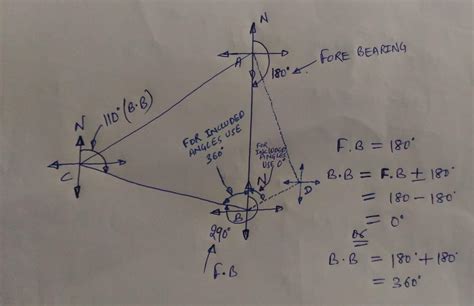 N
A
180°
FORE BEARING
110° (B.B)
N
C
FOR INCLUDED
ANGLES USE
360°
FOR INCLUDED
ANGLES
USE 0°
N
D
B
290°
F.B
F.B = 180°
B.B = F.B ± 180°
= 180 - 180°
= 0°
OR
B.B = 180° + 180°
= 360°